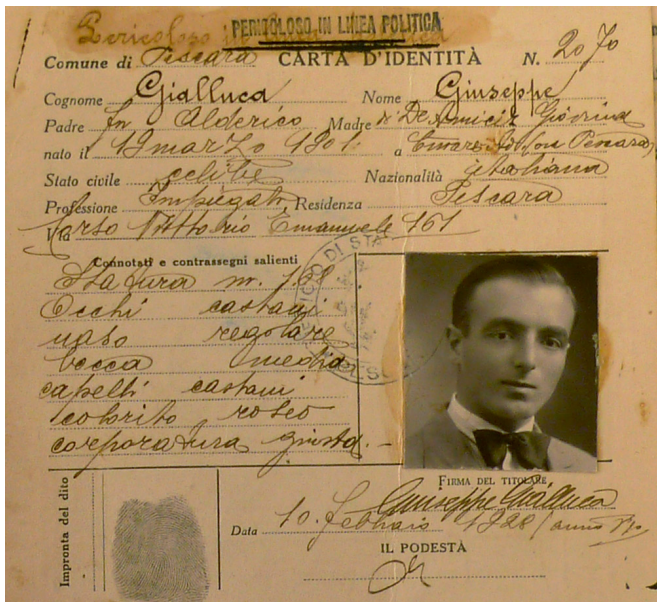 PERICOLOSO IN LINEA POLITICA
Pericoloso
Comune di Pescara CARTA D'IDENTITÀ N. 2070
Cognome Gialluca Nome Giuseppe
Padre fu Alderico Madre De Amicis Giovina
nato il 19 marzo 1901 a Pescara
Stato civile celibe Nazionalità italiana
Professione Impiegato Residenza Pescara
Via Corso Vittorio Emanuele 161
Connotati e contrassegni salienti
Statura m. 1,68
Occhi castani
naso regolare
bocca media
capelli castani
colorito roseo
corporatura giusta.-
FIRMA DEL TITOLARE
Giuseppe Gialluca
Impronta del dito
Data 10. febbraio 1928 anno
IL PODESTÀ